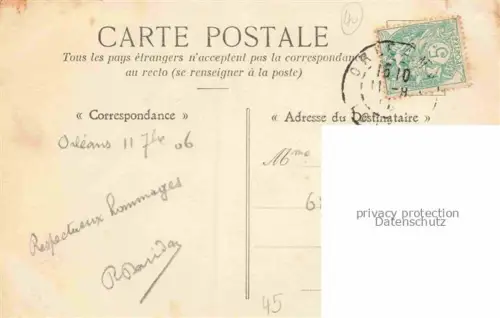 CARTE POSTALE
Tous les pays étrangers n'acceptent pas la correspondance
au recto (se renseigner à la poste)
« Correspondance »
« Adresse du Destinataire »
Orléans 11 7bre 06
Mme
Respectueux hommages
privacy protection
Datenschutz
45